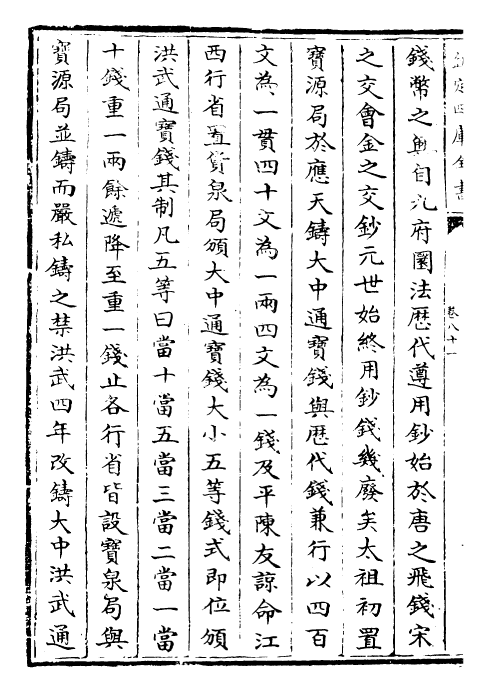 欽定四庫全書
卷八十一
錢幣之興自九府圜法歷代遵用鈔始於唐之飛錢宋
之交會金之交鈔元世始終用鈔錢幾廢矣太祖初置
寶源局於應天鑄大中通寶錢與歷代錢兼行以四百
文為一貫四十文為一兩四文為一錢及平陳友諒命江
西行省置貨泉局頒大中通寶錢大小五等錢式即位頒
洪武通寶錢其制凡五等曰當十當五當三當二當一當
十錢重一兩餘遞降至重一錢止各行省皆設寶泉局與
寶源局並鑄而嚴私鑄之禁洪武四年改鑄大中洪武通